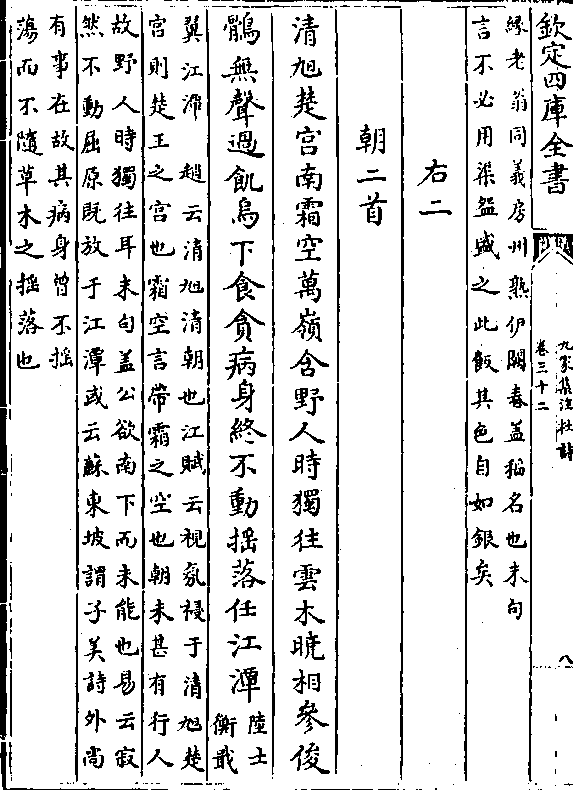 欽定四庫全書
九家集注杜詩
卷三十二
八
緣老翁同義房州熟伊闕春蓋稻名也末句
言不必用渠盌盛之此飯其色自如銀矣
右二
朝二首
清旭楚宫南霜空萬嶺含野人時獨往雲木曉相參俊
鶻無聲過飢烏下食貪病身終不動揺落任江潭
陸士
衡戢
翼江潭　趙云清旭清朝也江賦云視氛祲于清旭楚
宫則楚王之宫也霜空言帶霜之空也朝未甚有行人
故野人時獨往耳末句盖公欲南下而未能也易云寂
然不動屈原既放于江潭或云蘇東坡謂子美詩外尚
有事在故其病身曾不揺
蕩而不隨草木之揺落也